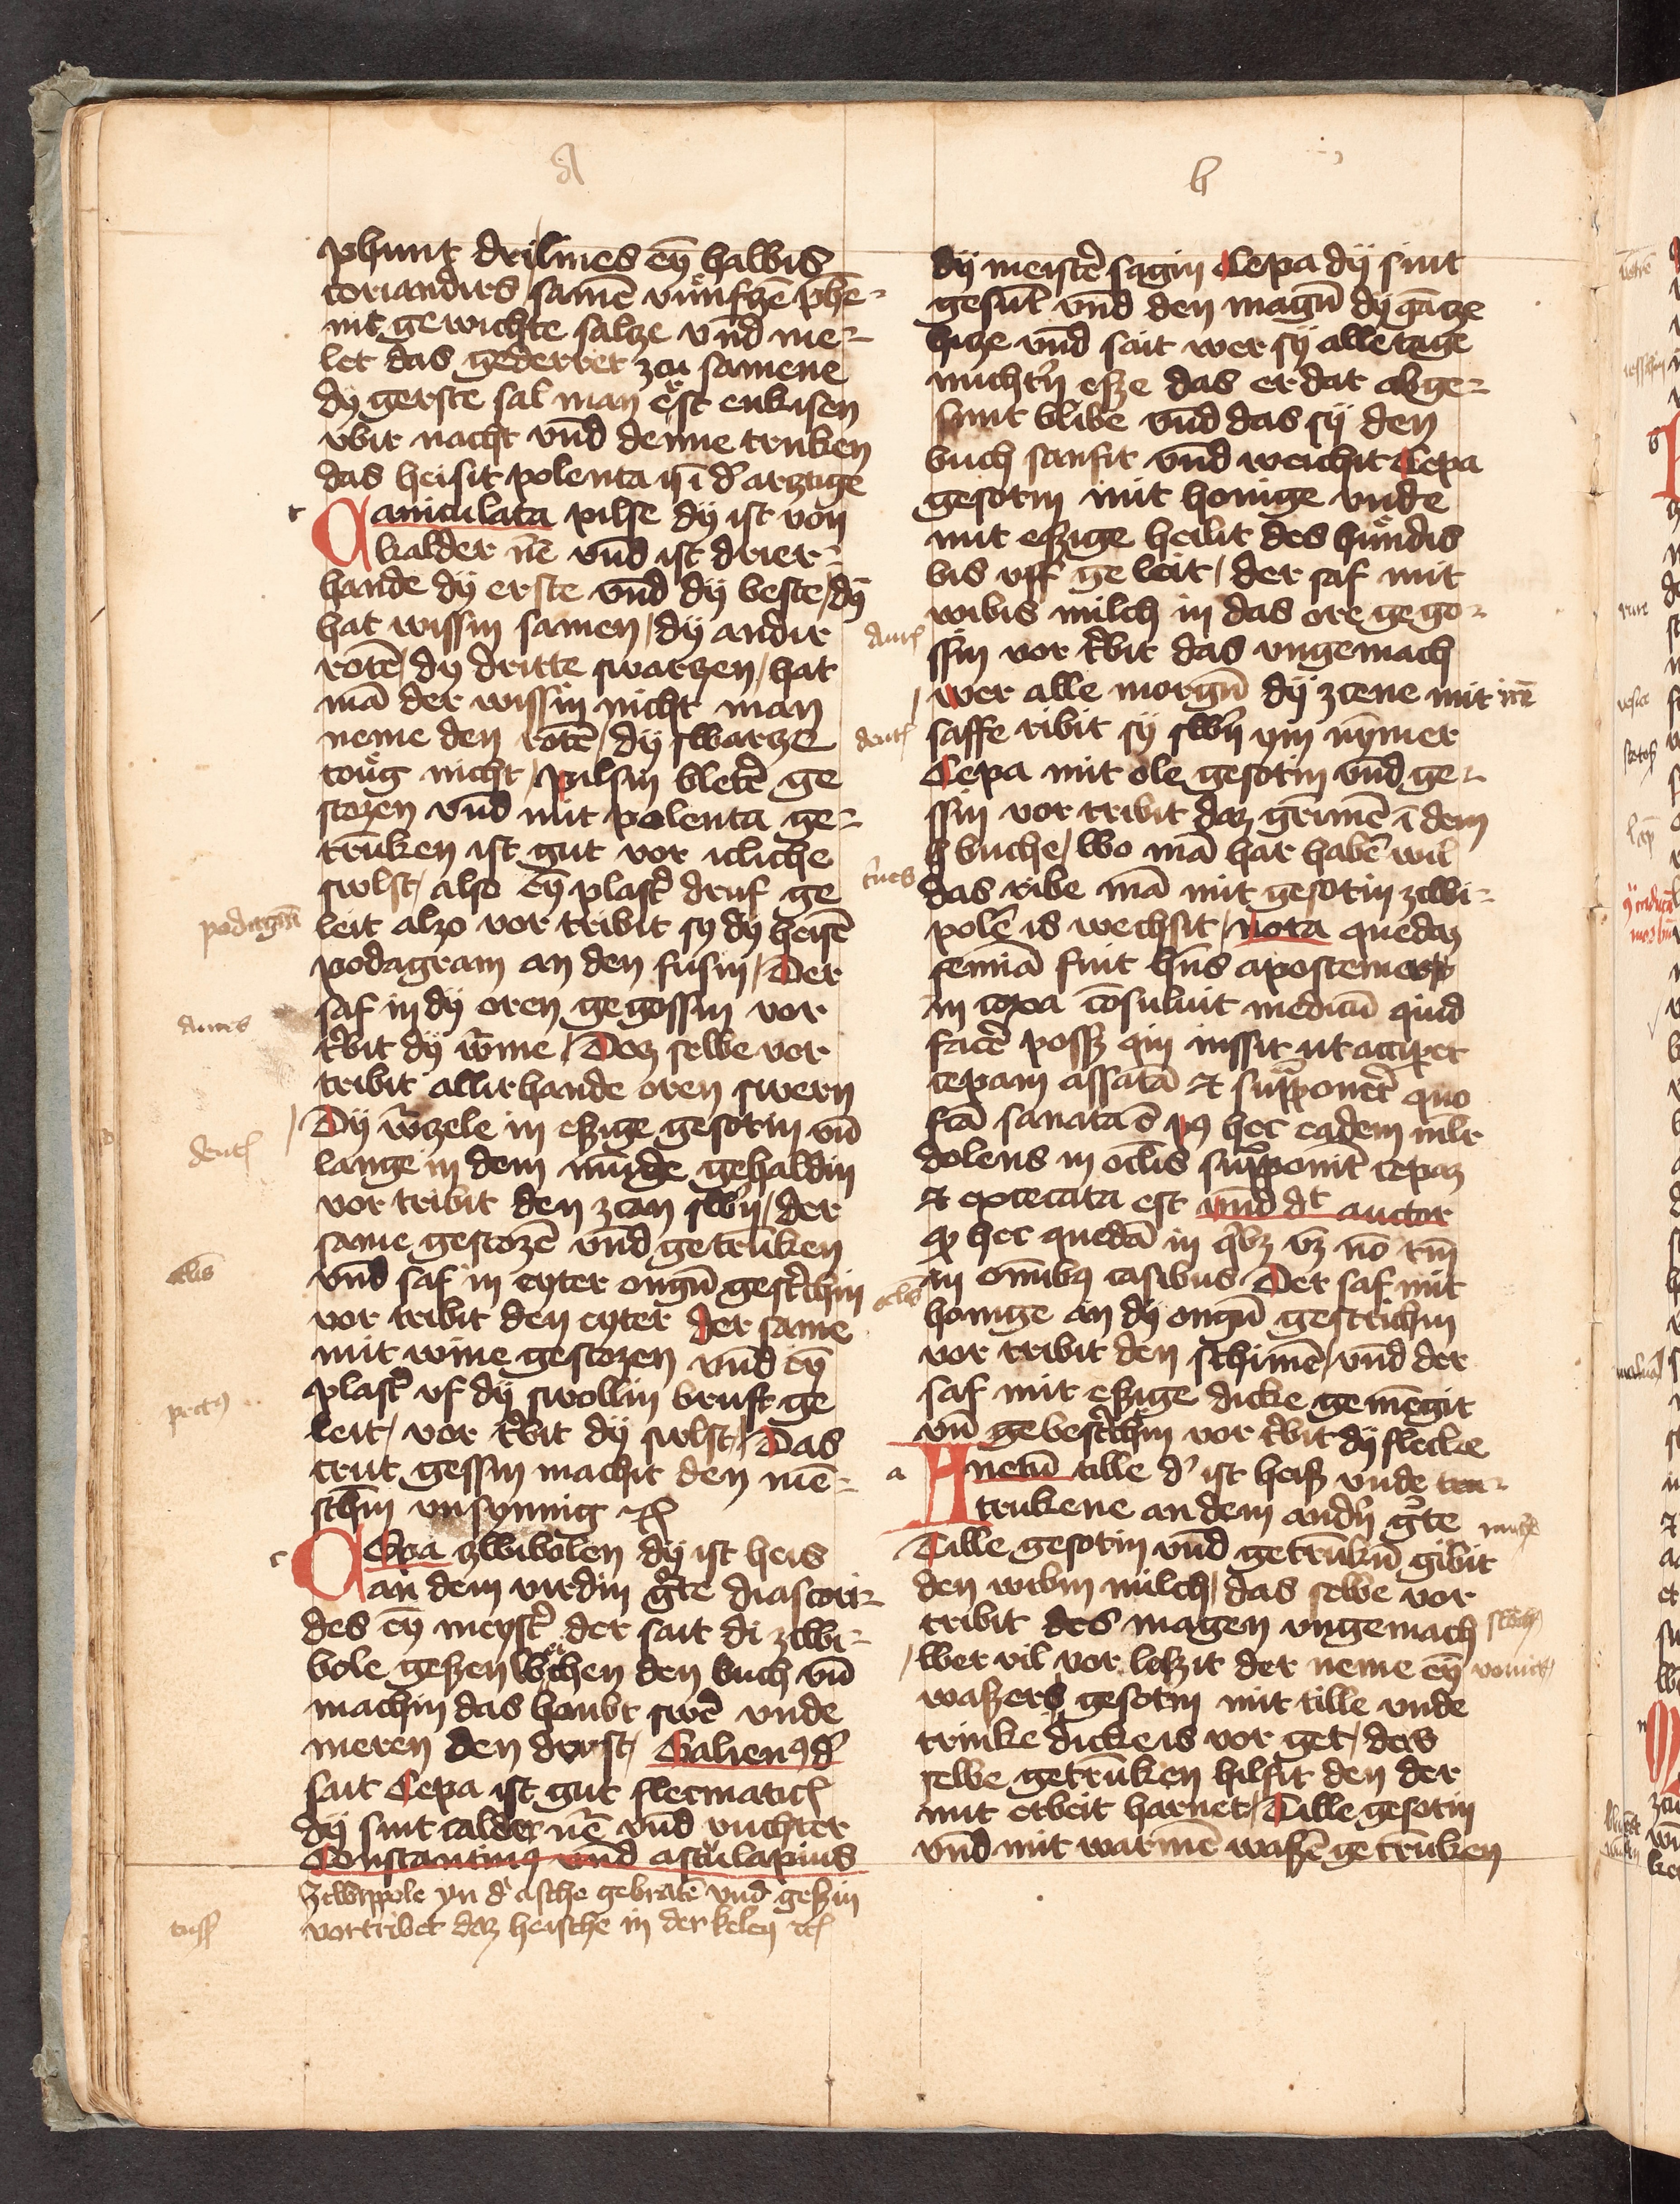 a
phunt drilines eyn̄ halbis
coriandirs samē vuͤnfzē phē-
nīc gewichte salze vn̄d me-
let das gederret zcu samene
dy gerste sal man eͤrst enkisen
vbir nacht vn̄d denne truken
das heisit polenta ī d' arztige
c
Caniculata pilse dÿ ist von
kalder nē vn̄d ist drier-
hande dÿ erste vn̄d dÿ beste / dÿ
hat wissin samen / dÿ andir
rotē / dÿ dritte swarzen / hat
mā der wissin nicht man
neme den rotē / dÿ swarze
touͤg nicht / pilsin bletē ge
stozen vn̄d mit polenta ge-
trūken ist gut vor icliche
swlst / also eyn̄ plast' druf ge
leit alzo vor tribit sy dÿ heisē
podagram an den fusin / Der
saf in dÿ oren gegossin vor
t'bit dÿ w̄rme / Doz selbe vor
tribit allirhande oren swern
Dÿ w̄rzele in eszige gesotin vn̄
lange in dem mūde gehaldin
vor tribit den zcan swn̄ / der
same gestozē vn̄d getrūken
vn̄d saf in eyter ougn̄ gest'ichin
vor tribit den eyter Der same
mit wine gestozen vn̄d eyn̄
plast' vf dÿ swollin brust ge
leit / vor t'bit dÿ swlst / Das
crut gessin machit den mē-
schin vnsynnig
c
Cepa zwibolen dÿ ist heis
an dem virdin g'te diascori-
des eyn̄ meyst' der sait di zcwi-
bole geszen weͤchen den buch vn̄
machin das houbt swē vnde
meren den dorst / Galien9 d'
sait Cepa ist gut flecmatic
dÿ sint calder nē vn̄d vuchter
Constantin9 vn̄d asculapius
Zcwippole yn d' asche gebratē vnd geszin
vortribet daz heische in der kelen
podagrā
aures
dent
oclis
pect9
tuss
b
dÿ meistē sagin Cepa dÿ sint
gesūt vn̄d den magn̄ dÿ gāze
hize vn̄d sait wer sÿ alle tage
nucht'n esze das er dar abge-
sunt blibe vn̄d das sÿ den
buch sanfit vn̄d weichit Cepa
gesotin mit honige vnde
mit eszige heilit des huͤndis
bis vff ge leit / der saf mit
wibis milch in das ore gego-
ssin vor t'bit das vngemach
wer alle morgn̄ dÿ zcene mit irē
saffe ribit sÿ swn̄ ym nȳmer
Cepa mit ole gesotin vn̄d ge-
ssin vor tribit daz grimē ī dem
buche / Wo mā har habē wil
das ribe mā mit gesotin zcwi-
polē is wechsit / Nota quedaz
femīa fuit hn̄s apostema
in coxa cōsuluit medicū quid
facē possz qui iussit ut acciperet
cepam assatā et supponer' quo
fcā sanata ē p9 hec eadem mlr
dolens in oclis supponit cepaz
et excecata est vn̄d dt auctor
q hec quedā in q'bz vz nō tn̄
in om̄ibus casibus Der saf mit
honige an dÿ ougn̄ gestrichin
vor tribit den schimē / vn̄d der
saf mit eszige dicke gemēgit
vn̄ gebest'chin vor t'bit dÿ flecke
a
Anetū tille d' ist heisz vnde
trukene an dem and'n g'te
Tille gesotin vn̄d getrūkn̄ gibit
den wibin milch / das selbe vor
tribit des magen vngemach
wer vil vor leszit der neme eyn̄
waszers gesotin mit tille vnde
trinke dicke is vor get / das
selbe getrūken hilfit den der
mit erbeit harnet / Tille gesotin
vn̄d mit warmē waszē ge trūken
aures
dent
crines
oclis
stōch
vomit